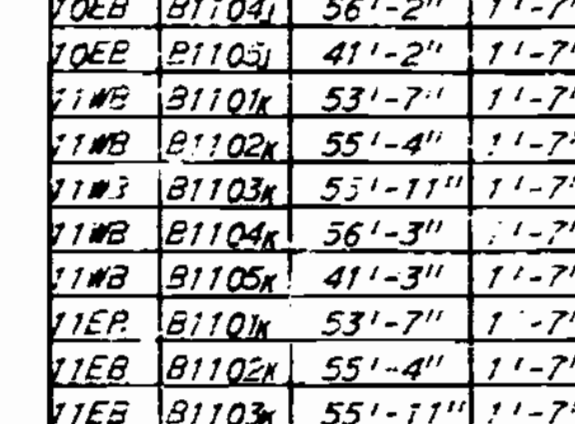 10EB B1104j 56'-2" 1'-7'
10EB B1105j 41'-2" 1'-7'
11WB B1101K 53'-7" 1'-7'
11WB B1102K 55'-4" 1'-7'
11WB B1103K 55'-11" 1'-7'
11WB B1104K 56'-3" 1'-7'
11WB B1105K 41'-3" 1'-7'
11EB B1101K 53'-7" 1'-7'
11EB B1102K 55'-4" 1'-7'
11EB B1103K 55'-11" 1'-7'